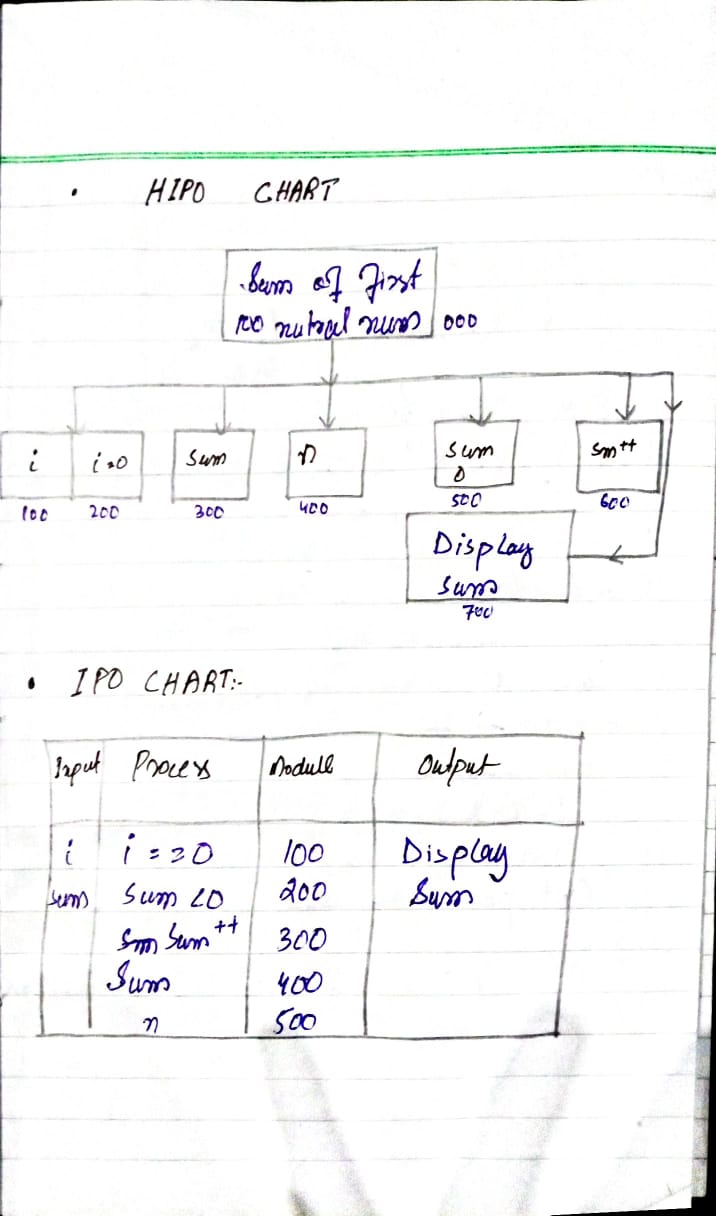 • HIPO CHART
Sum of First
100 nutral nums 000
i i=0 Sum n Sum Sm++
0
100 200 300 400 500 600
Display
Sum
700
• IPO CHART:-
Input Process Module Output
i i==0 100 Display
Sum Sum <0 200 Sum
Sum++ 300
Sum 400
n 500